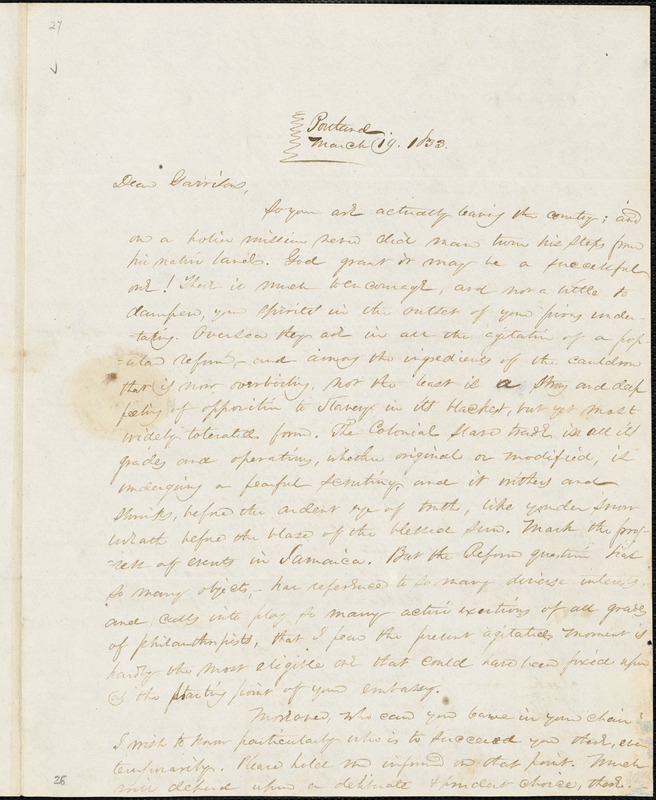 27
Portland
March 19. 1833.
Dear Garrison,
So you are actually leaving the country; and
on a holier mission never did man turn his steps from
his native land. God grant it may be a successful
one! There is much to encourage, and not a little to
dampen, your spirits in the outset of your pious under-
-taking. Oversea they are in all the agitation of a pop-
-ular reform, - and among the ingredients of the cauldron
that is now overboiling, not the least is a strong and deep
feeling of opposition to Slavery in its blackest, but yet most
widely tolerated form. The Colonial Slave trade in all its
grades and operations, whether original or modified, is
undergoing a fearful scrutiny, and it withers and
shrinks, before the ardent eye of truth, like yonder snow
wreath before the blaze of the blessed sun. Mark the prog-
-ress of events in Jamaica. But the Reform question has
so many objects, - has reference to so many diverse interests,
and calls into play so many active exertions of all grades
of philanthropists, that I fear the present agitated moment is
hardly the most eligible one that could have been fixed upon
as the starting point of your embassy.
Moreover, who can you leave in your chair?
I wish to know particularly who is to succeed you there, even
temporarily. Please hold me informed on that point. Much
will depend upon a deliberate & prudent choice, there.
26